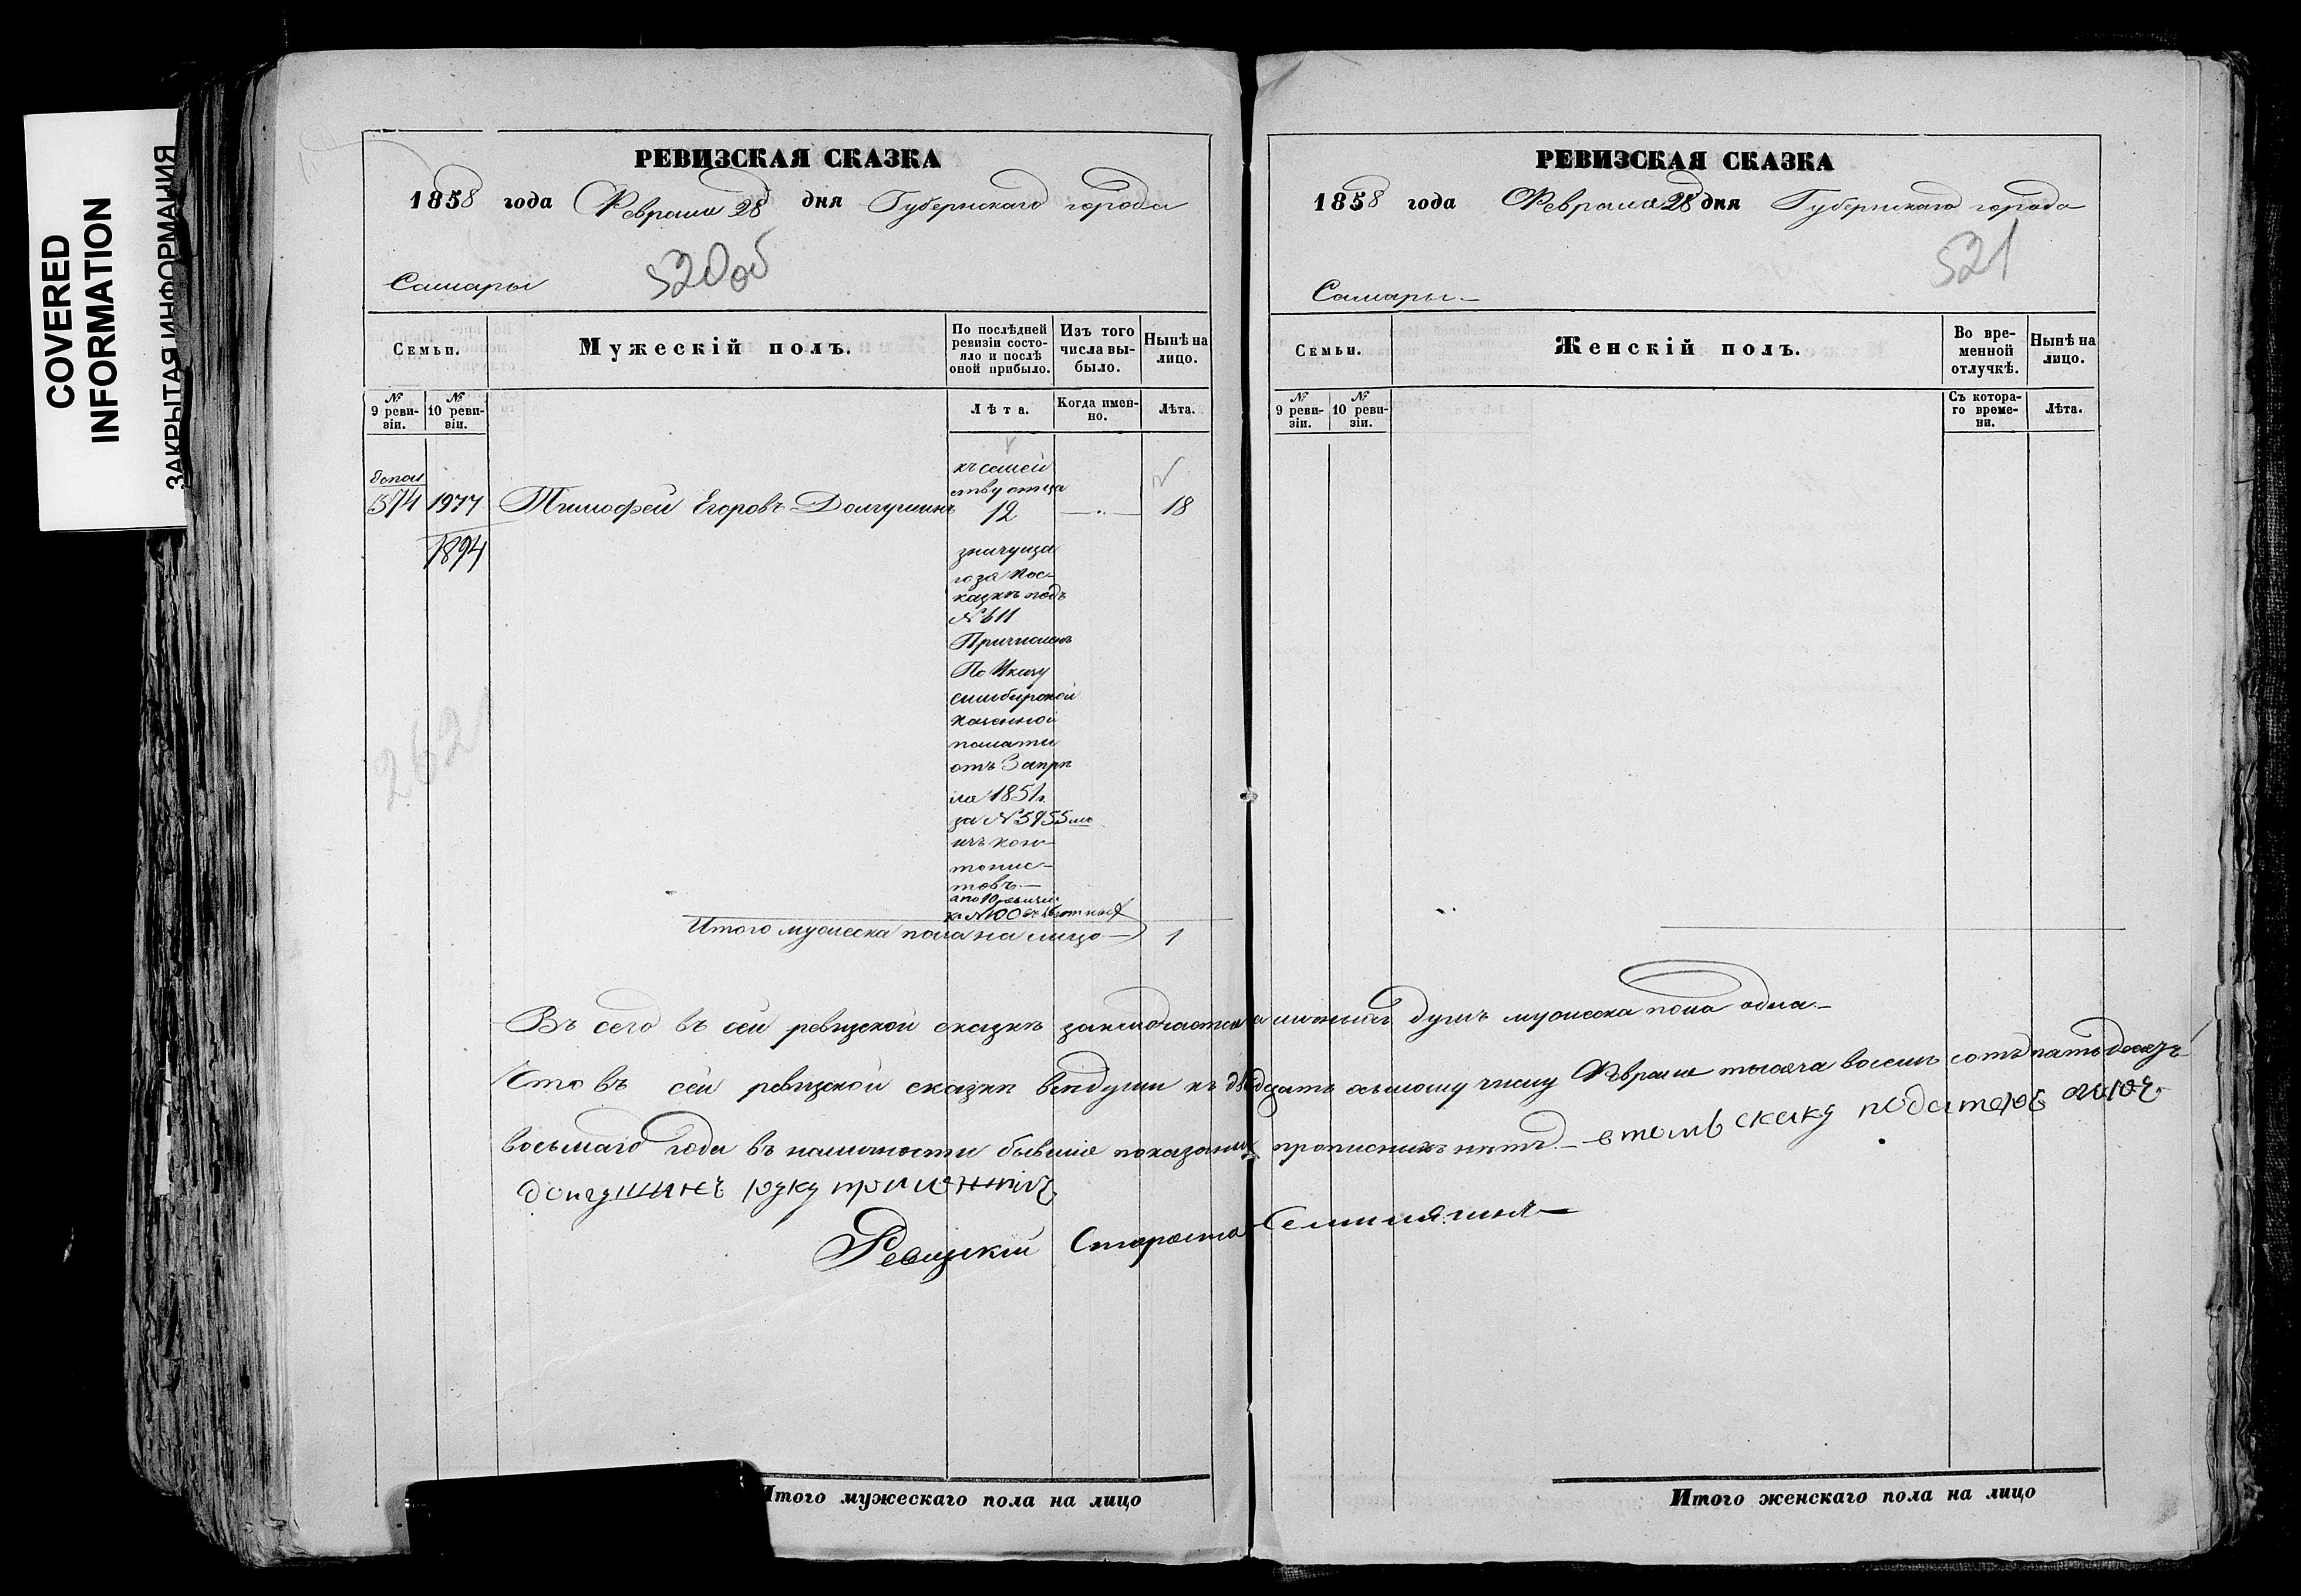 COVERED
INFORMATION
ЗАКРЫТАЯ ИНФОРМАЦИЯ
РЕВИЗСКАЯ СКАЗКА
1858 года Февраля 28 дня Губернскаго города
Самары
520об
Семьи.
Мужескій полъ.
По послѣдней ревизіи состояло и послѣ оной прибыло.
Изъ того числа выбыло.
Нынѣ на лицо.
№ 9 ревизіи.
№ 10 ревизіи.
Лѣта.
Когда именно.
Лѣта.
къ семей
ству отца
1574 1977 Тимофей Егоровъ Долгушинъ 12 18
1894
значуща
го
сказкѣ подъ
№ 611
Причисленъ
По Указу
симбирской
казенной
палаты
отъ 3 апрѣ
ля 1851 г.
за № 5955
изъ кан
тонис-
товъ.
262
Итого мужеска пола на лицо 1
Въ сей ревизской сказкѣ заключается
Что въ сей ревизской сказкѣ всѣ души къ двадцать осьмому числу Февраля тысяча восемь сотъ пятьдесятъ
восьмаго года въ наличности бывшіе показаны прописныхъ нѣтъ.
Ревизкій Староста
РЕВИЗСКАЯ СКАЗКА
1858 года Февраля 28 дня Губернскаго города
Самары.
521
Семьи.
Женскій полъ.
Во временной отлучкѣ.
Нынѣ на лицо.
№ 9 ревизіи.
№ 10 ревизіи.
Съ котораго времени.
Лѣта.
душъ мужеска пола одна.
Итого мужескаго пола на лицо
Итого женскаго пола на лицо